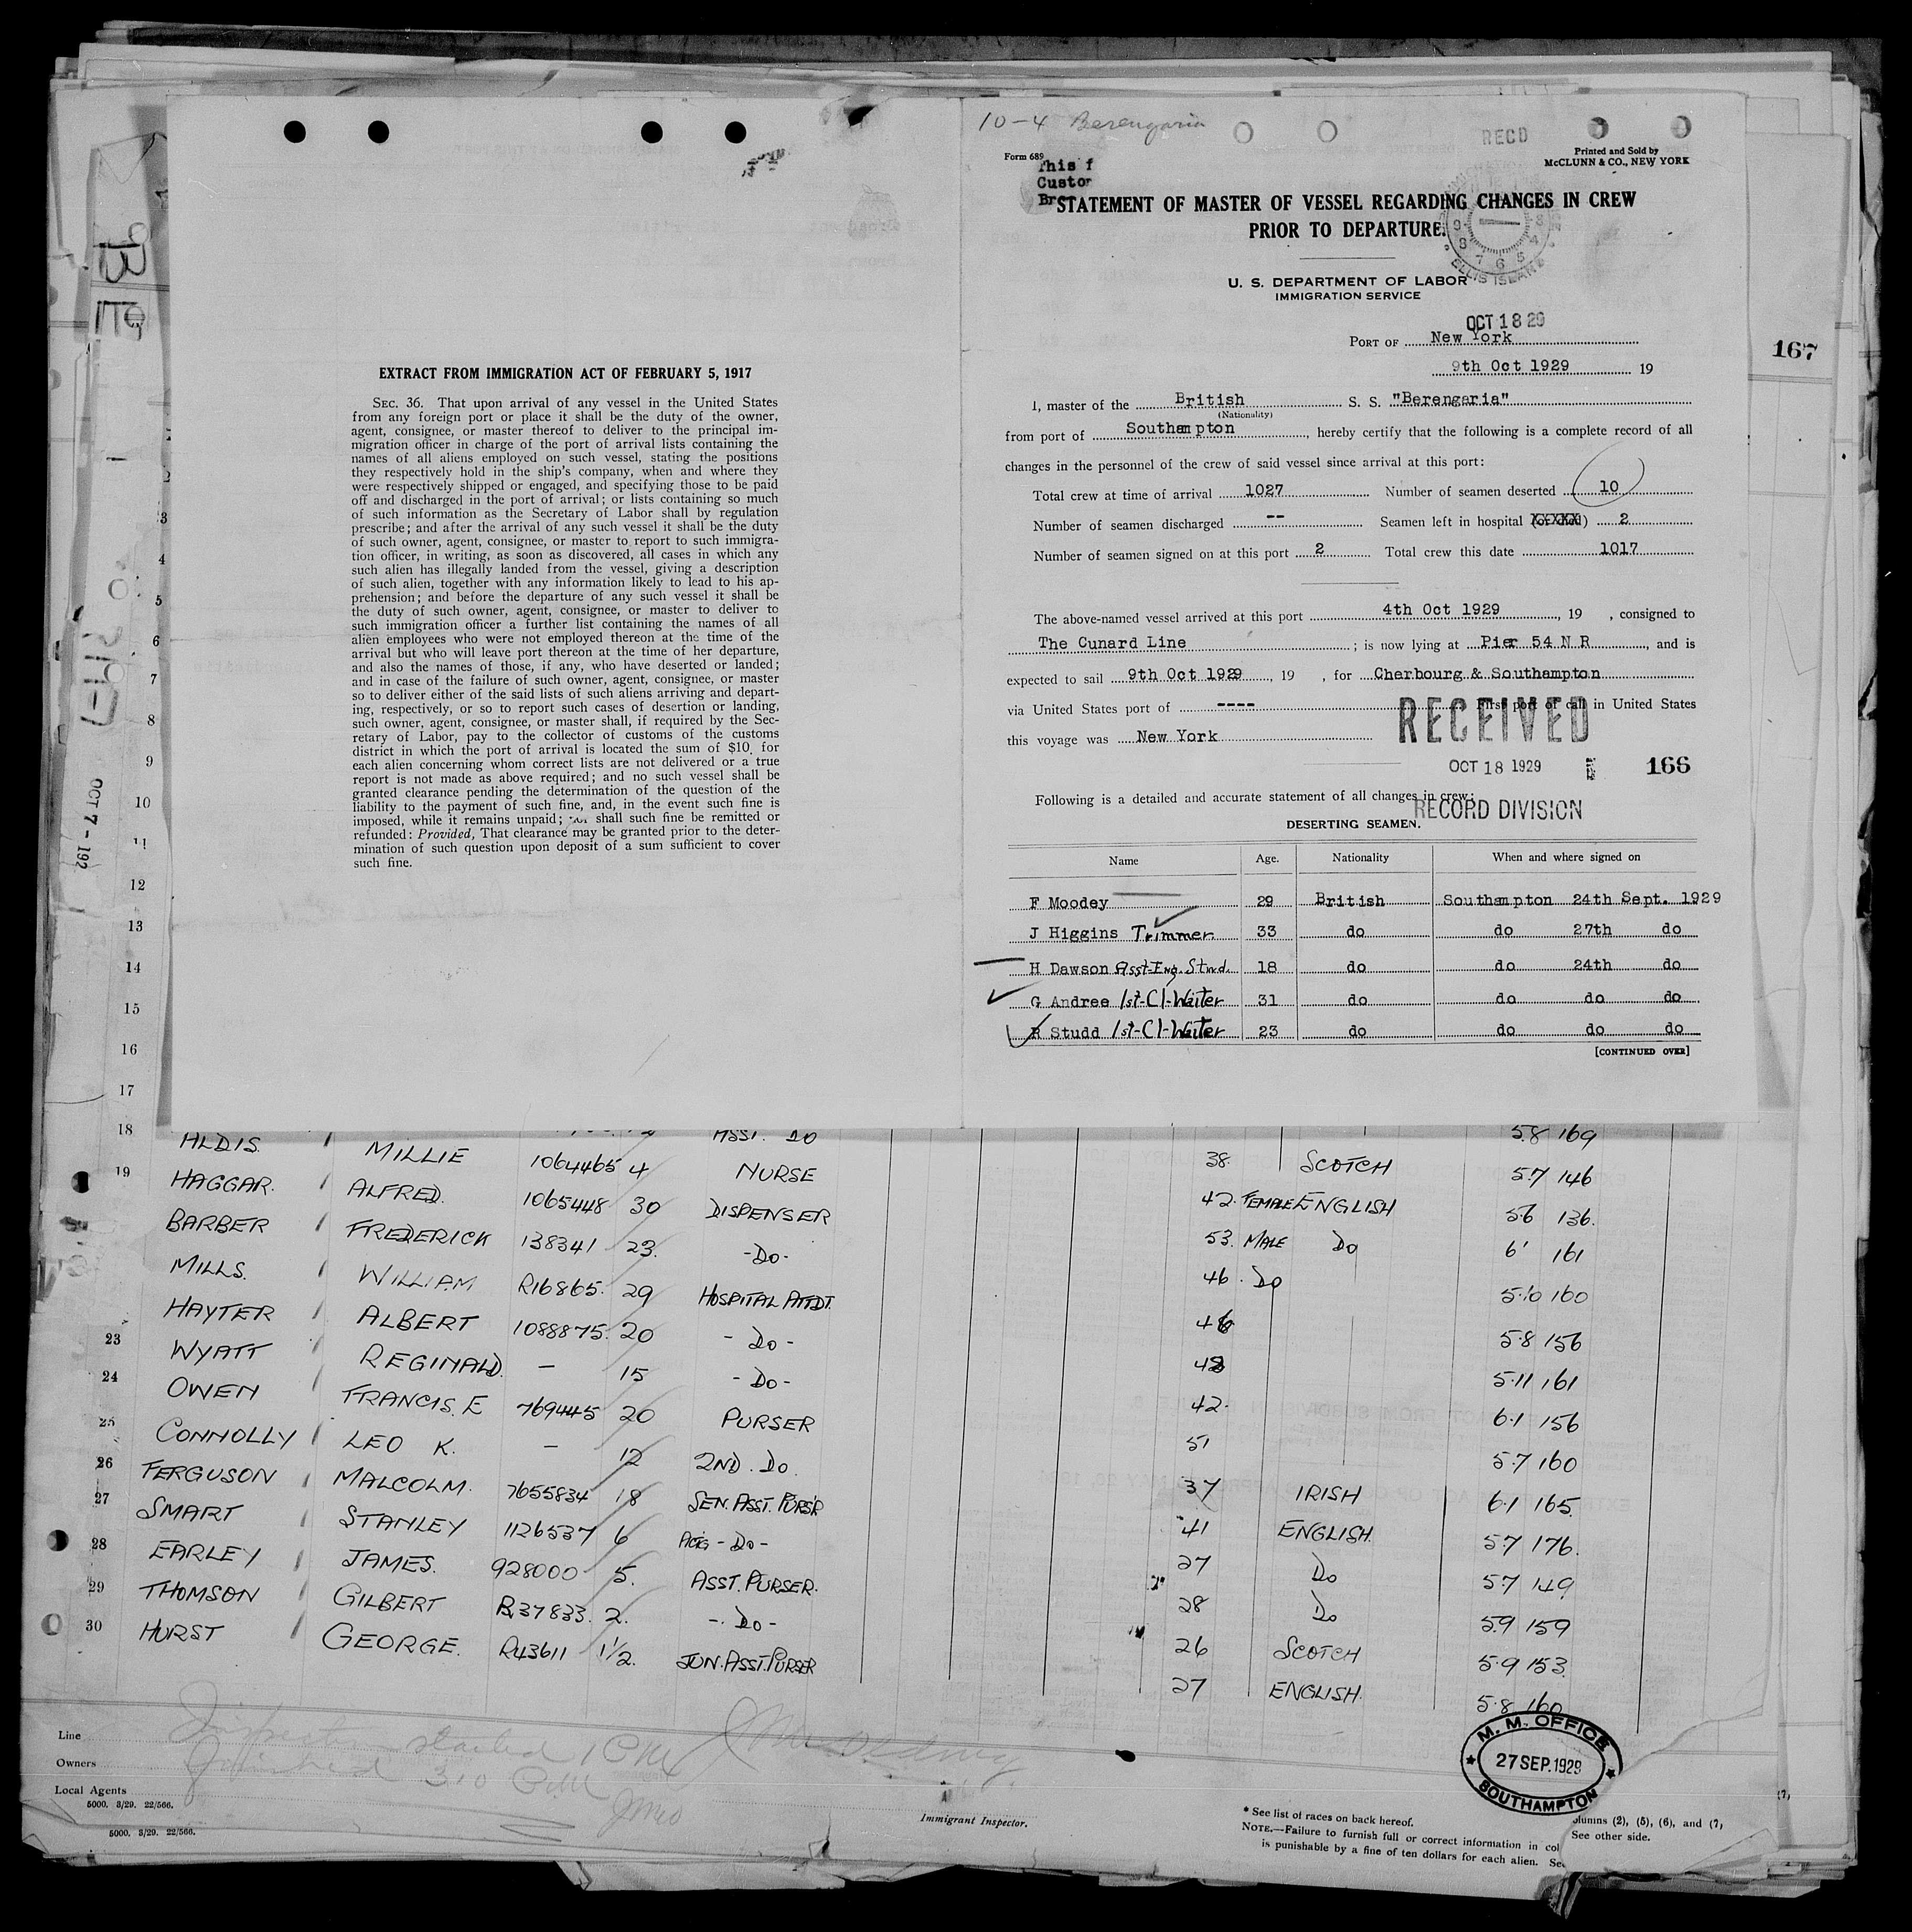 EXTRACT FROM IMMIGRATION ACT OF FEBRUARY 5, 1917
SEC. 36. That upon arrival of any vessel in the United States
from any foreign port or place it shall be the duty of the owner,
agent, consignee, or master thereof to deliver to the principal im-
migration officer in charge of the port of arrival lists containing the
names of all aliens employed on such vessel, stating the positions
they respectively hold in the ship's company, when and where they
were respectively shipped or engaged, and specifying those to be paid
off and discharged in the port of arrival; or lists containing so much
of such information as the Secretary of Labor shall by regulation
prescribe; and after the arrival of any such vessel it shall be the duty
of such owner, agent, consignee, or master to report to such immigra-
tion officer, in writing, as soon as discovered, all cases in which any
such alien has illegally landed from the vessel, giving a description
of such alien, together with any information likely to lead to his ap-
prehension; and before the departure of any such vessel it shall be
the duty of such owner, agent, consignee, or master to deliver to
such immigration officer a further list containing the names of all
alien employees who were not employed thereon at the time of the
arrival but who will leave port thereon at the time of her departure,
and also the names of those, if any, who have deserted or landed;
and in case of the failure of such owner, agent, consignee, or master
so to deliver either of the said lists of such aliens arriving and depart-
ing, respectively, or so to report such cases of desertion or landing,
such owner, agent, consignee, or master shall, if required by the Sec-
retary of Labor, pay to the collector of customs of the customs
district in which the port of arrival is located the sum of $10 for
each alien concerning whom correct lists are not delivered or a true
report is not made as above required; and no such vessel shall be
granted clearance pending the determination of the question of the
liability to the payment of such fine, and, in the event such fine is
imposed, while it remains unpaid; nor shall such fine be remitted or
refunded: Provided, That clearance may be granted prior to the deter-
mination of such question upon deposit of a sum sufficient to cover
such fine.
10-4 Berengaria
RECD
Form 689
Printed and Sold by
McCLUNN & CO., NEW YORK
This f
Custor
Br
STATEMENT OF MASTER OF VESSEL REGARDING CHANGES IN CREW
PRIOR TO DEPARTURE.
ELLIS ISLAND
U. S. DEPARTMENT OF LABOR
IMMIGRATION SERVICE
OCT 18 29
PORT OF New York
9th Oct 1929 19
167
I, master of the British S. S. "Berengaria"
(Nationality)
from port of Southampton, hereby certify that the following is a complete record of all
changes in the personnel of the crew of said vessel since arrival at this port:
Total crew at time of arrival 1027 Number of seamen deserted 10
Number of seamen discharged -- Seamen left in hospital (or died) 2
Number of seamen signed on at this port 2 Total crew this date 1017
The above-named vessel arrived at this port 4th Oct 1929, 19 , consigned to
The Cunard Line ; is now lying at Pier 54 N R, and is
expected to sail 9th Oct 1929, 19 , for Cherbourg & Southampton
via United States port of ---- First port of call in United States
this voyage was New York
RECEIVED
OCT 18 1929
166
RECORD DIVISION
Following is a detailed and accurate statement of all changes in crew:
DESERTING SEAMEN.
Name Age. Nationality When and where signed on
F Moodey 29 British Southampton 24th Sept. 1929
J Higgins Trimmer 33 do do 27th do
H Dawson Asst-Eng. Stwd. 18 do do 24th do
G Andree 1st-Cl-Waiter 31 do do do do
R Studd 1st-Cl-Waiter 23 do do do do
[CONTINUED OVER]
OCT 7- 192
3
4
5
6
7
8
9
10
11
12
13
14
15
16
17
18
19
23
24
25
26
27
28
29
30
ALDIS MILLIE 1064465 4 NURSE
HAGGAR ALFRED. 1065448 30 DISPENSER
BARBER FREDERICK 138341 23. -DO-
MILLS. WILLIAM R16865. 29 HOSPITAL ATTDT.
HAYTER ALBERT 1088875. 20 -DO-
WYATT REGINALD. — 15 -DO-
OWEN FRANCIS. E 769445 20 PURSER
CONNOLLY LEO K. — 12 2ND. DO.
FERGUSON MALCOLM. 7655834 18 SEN. ASST. PURS'R
SMART STANLEY 1126537 6 ACTG -DO-
EARLEY JAMES. 928000 5. ASST. PURSER.
THOMSON GILBERT R37833. 2. -DO-
HURST GEORGE. R43611 1½. JUN. ASST. PURSER
ASST. DO
5.8 169
38. SCOTCH 5.7 146
42. FEMALE ENGLISH 5.6 136.
53. MALE DO 6' 161
46. DO 5.10 160
46 5.8 156
48 5.11 161
42. 6.1 156
51 5.7 160
37 IRISH 6.1 165.
41 ENGLISH. 5.7 176.
27 DO 5.7 149
28 DO 5.9 159
26 SCOTCH 5.9 153.
27 ENGLISH. 5.8 160
Line
Owners
Local Agents
Inspection started 1 PM
Finished 310 P.M.
5000. 3/29. 22/566.
5000. 3/29. 22/566.
Immigrant Inspector.
M. M. OFFICE
27 SEP. 1929
SOUTHAMPTON
* See list of races on back hereof.
NOTE.—Failure to furnish full or correct information in col
is punishable by a fine of ten dollars for each alien. See
olumns (2), (5), (6), and (7,
See other side.